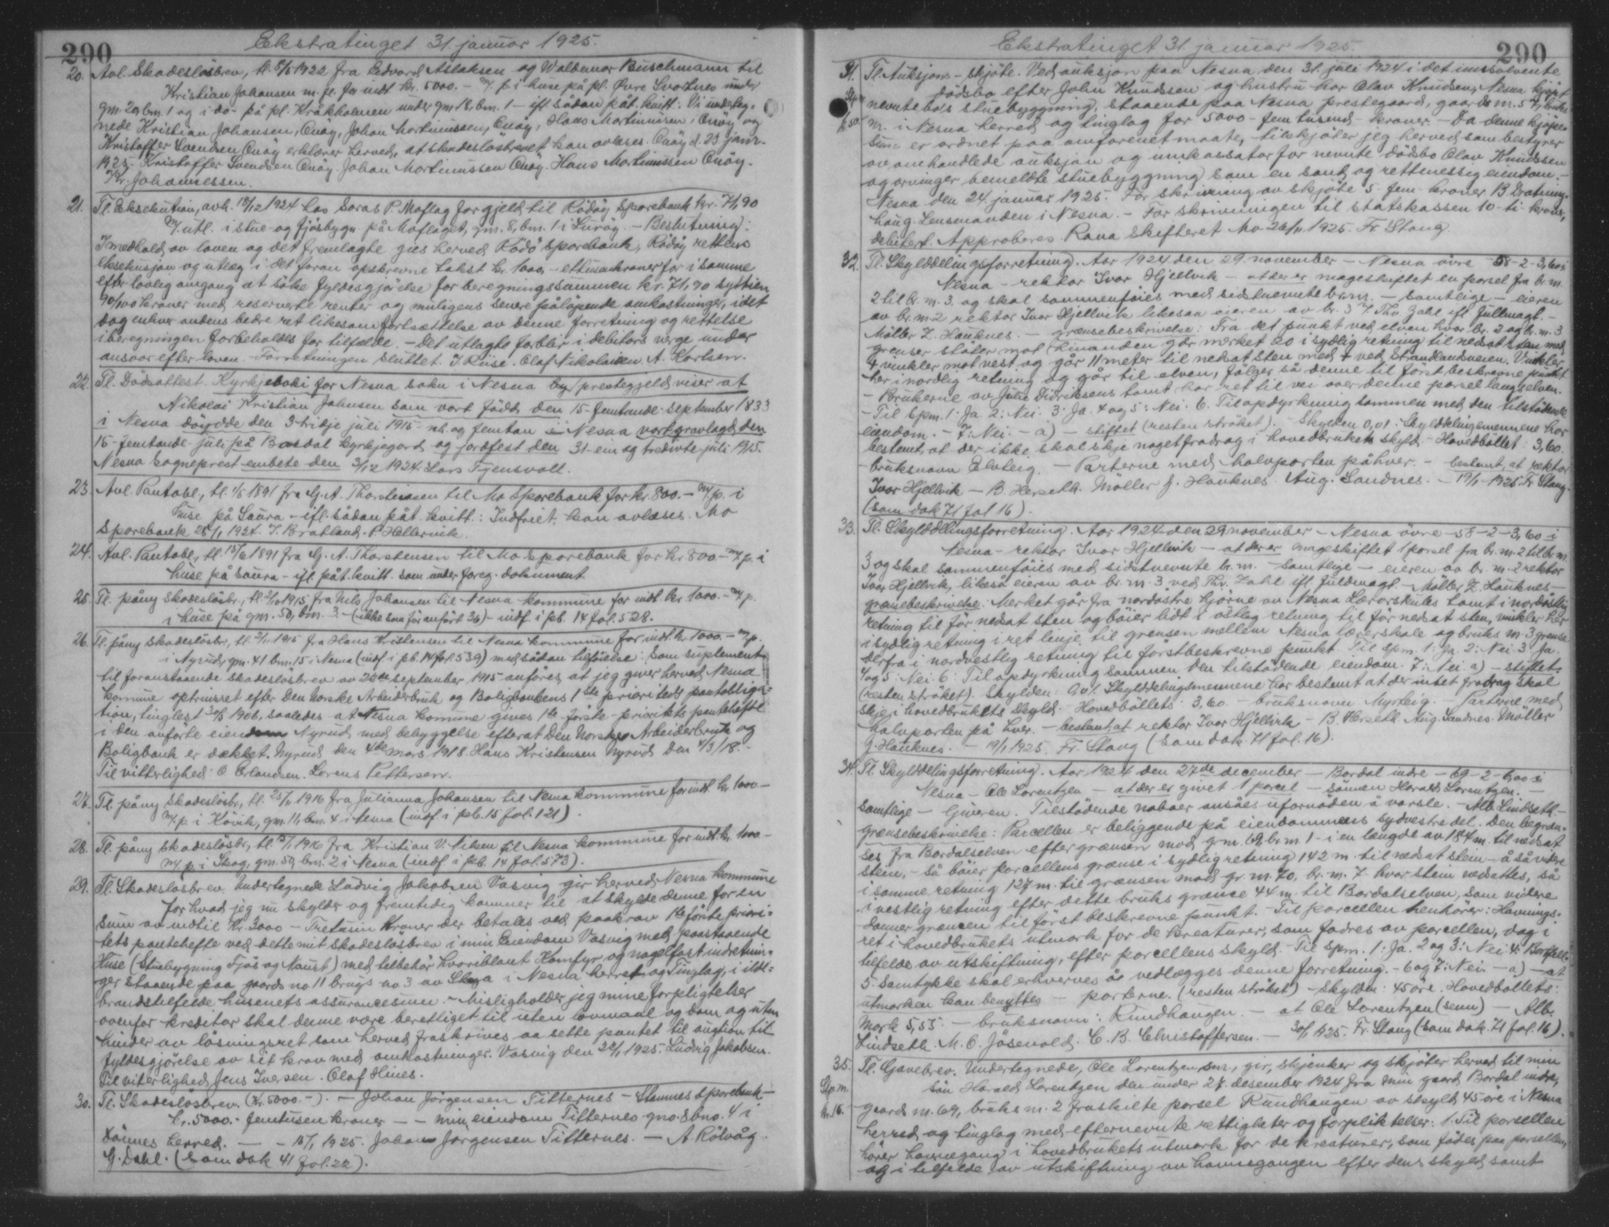 290
Ekstratinget 31. januar 1925.
20. Avl. Skadeslösbrev, tl. 1922 fra Edvard Aslaksen og Waldemar Buschmann til
Kristian Johansen m. fl. for indt kr. 5000.- m/p. i huse på pl. Övre Svartnes under
gm. 20 bm. 1 og i do på pl. Kråkholmen under gm. 18, bm. 1 - ifl. sådan påt. kvitt: Vi underteg-
nede Kristian Johansen, Onöy, Johan Mortinussen, Onöy, Hans Mortinussen, Onöy og
Kristoffer Svendsen Onöy erklærer herved, at skadeslösbrevet kan avlæses. Onöy d. 23 janr.
1925. Kristoffer Svendsen Onöy. Johan Mortinussen Onöy. Hans Mortinussen Onöy.
Kr. Johannessen.
21. Tl. Eksekution, avh. 18/12 1924 hos Soras P. Moflag for gjeld til Rödöy Sparebank kr. 71,90
m/utl. i stue og fjösbygn på Moflaget, gm. 8, bm. 1 i Luröy. - Beslutning:
I medhold av loven og det fremlagte gies herved Rödö Sparebank, Rödöy rettens
eksekusjon og utlæg i det foran opskrevne takst kr. 1000, - ettusen kroner for i samme
efter lovlig omgang at söke fyldesgjörelse for beregningssummen kr. 71,90 syttien
90/100 kroner med reserverte renter og muligens senere påløpende omkostninger, idet
dog enhver andens bedre ret likesom fortsættelse av denne forretning og rettelse
i beregningen forbeholdes for tilfælde. - Det utlagte forblir i debitors verge under
ansvar efter loven. - Forretningen sluttet. J. Kruse. Olaf Nikolaisen A. Karlsen.
22. Tl. Dödsattest. Kyrkjeboki for Nesna sokn i Nesna prestegjeld viser at
Nikolai Kristian Johnsen som vart född den 15- femtande september 1833
i Nesna döydde den 3- tridje juli 1915 - nitten og femtan i Nesna vart gravlagd den
15- femtande- juli på Bardal kyrkjegard og jordfest den 31- ein og tredivte juli 1915.
Nesna sogneprest-embete den 3/12 1924. Lars Tjensvoll.
23. Avl. Pantobl, tl. 1891 fra G. A. Thorstensen til Mo Sparebank for kr. 800.- m/p. i
huse på Saura - ifl. sådan påt. kvitt.: Indfriet, kan avlæses. Mo
Sparebank 28/1 1925. J. Bratland. P. Hellervik.
24. Avl. Pantobl, tl. 1891 fra G. A. Thorstensen til Mo Sparebank for kr 800 - m/p. i
huse på Saura - ifl. påt. kvitt. som under foreg. dokument
25. Tl. påny skadeslösbr., tl. 1915 fra Nils Johansen til Nesna kommune for indt kr. 1000.- m/p.
i huse på gm. 50, bm. 3 - (ikke som för anfört 36) - indf i pb. 14 fol. 528.
26. Tl. påny skadeslösbr., tl. 1915 fra Hans Kristensen til Nesna kommune for indt kr. 1000.- m/p.
i Nyrud, gm. 41 bm. 15 i Nesna (indf i pb. 14 fol. 539) med sådan tilföielse: Som suplement
til foranstaaende skadeslösbrev av 20de september 1915 anföres, at jeg giver herved Nesna
komune optrinsret efter den norske Arbeiderbruk og Boligbankens 1ste prioritets pantobliga-
tion, tinglæst 1906, saaledes at Nesna komune gives 1ste förste - prioritets panteheftel
i den anförte eiendom Nyrud med bebyggelse efterat den Norske Arbeiderbruk og
Boligbank er dækket. Nyrud den 4de mars 1918. Hans Kristensen Nyrud den 4/3/18.
Til vitterlighed: O Erlandsen. Lorens Pettersen.
27. Tl. påny skadeslösbr., tl. 1916 fra Julianna Johansen til Nesna kommune for indt kr. 1000 -
m/p i Havik, gm. 16, bm. 4 i Nesna (indf i pb. 15 fol. 121).
28. Tl. påny skadeslösbr., tl. 1916 fra Kristian V. Nilsen til Nesna kommune for indt kr. 1000 -
m/p i Skog, gm. 59, bm. 2 i Nesna (indf i pb. 14 fol. 573).
29. Tl. Skadeslösbrev. Undertegnede Ludvig Jakobsen Vasvig gir herved Nesna kommune
for hvad jeg nu skylder og fremtidig kommer til at skylde denne for en
sum av indtil kr. 3000 - Tretusin Kroner der betales ved paakrav 1ste förste priori-
tets pantehefte ved dette mit skadeslösbrev i min Eiendom Vasvig med paastaaende
Huse (Stuebygning Fjös og Naust) med tilbehör hvoriblant Komfyr, og nagelfast indretnin-
ger staaende paa gaards no 11 bruks no 3 av i Nesna herret og Tinglag, i ild-
brandstilfælde husenets assurancesum. - Misligholder jeg mine forpligtelser
ovenfor kreditor skal denne være berettiget til uten lovmaal og dom og uten
hinder av lösningsret som herved fraskrives aa sette pantet til auktion til
fyldesgjörelse av sit krav med omkostninger. Vasvig den 22/1 1925. Ludvig Jakobsen.
Til viterlighed Jens Iversen. Olaf Hines.
30. Tl. Skadeslösbrev. (Kr. 5000 -). - Johan Jörgensen Titternes - Stamnes Sparebank -
kr. 5000.- femtusen kroner - - min eiendom Titternes gno. 8 bno. 4 i
Dönnes herred. - - 15/1 1925. Johan Jörgensen Titternes. - A Rölvåg.
G. Dahl. (som dok 41 fol. 22).
290
Ekstratinget 31. januar 1925.
31. Tl. Auksjons - skjöte. Ved auksjon paa Nesna den 31. juli 1924 i det insolvente
dödsbo efter John Knudsen og hustru har Olav Knudsen, Nesna kjöpt
nevnte bo's stuebyggning, staaende paa Nesna prestegaard, gaards m. 57, bruks
m. i Nesna herred og tinglag for 5000 - fem tusend - kroner - Da denne kjöpe-
sum er ordnet paa anförenet maate, tilskjöter jeg herved som bestyrer
av omhandlede auksjon og innkassator for nevnte dödsbo Olav Knudsen
og arvinger bemeldte stuebyggning som en sand og rettmessig eiendom. -
Nesna den 24 januar 1925. For skrivning av skjöte 5 fem kroner B. Bratning-
haug Lensmanden i Nesna. - For skrivningen til statskassen 10 - ti kroner,
debitert. Approberes Rana Skifteret Mo 26/1 1925. Fr Stang
32. Tl. Skylddelingsforretning. Aar 1924 den 29 november - Nesna övre - 58 - 2 - 3,60 i
Nesna - rektor Ivar Hjellvik - at der er mageskiftet en parsel fra br. m.
2 til br. m. 3. og skal sammenföies med sidstnevnte br. m. - Samtlige - eieren
av br. m. 2 rektor Ivar Hjellvik likesaa eieren av br. 3 v/ Thv. Zahl ifl fuldmagt. -
Möller Z. Hauknes - grænsebeskrivelse: Fra det punkt ved elven hvor br. 2 og br. m. 3
grenser stöter mot Remanden går mærket 20 i sydlig retning til nedsat sten med
+, vinkler mot vest og går 11 meter til nedsat sten med + ved Strandlandsveien. Vinkler
her i nordlig retning og går til elven, fölger så denne til förstbeskrevne punkt
- Brukerne av Julie Didriksens tomt har ret til vei over denne parsel langs elven.
- Til spm. 1: Ja. 2: Nei. 3: Ja. 4 og 5: Nei. 6. Til opdyrkning sammen med den tilstötende
eiendom. - 7. Nei. - a) - stiftet (resten ströket). - Skylden 0,01. Skylddelingsmennene har
bestemt at der ikke skal skje noget fradrag i hovedbrukets skyld. - Hovedböllet. 3,60.
- bruksnavn Elvteig. - Parterne med halvparten på hver. - bestemt, at rektor
Ivar Hjellvik - B. Herseth. Möller J. Hauknes. Aug. Sandnes. - 19/1 1925. Fr. Stang.
(som dok 71 fol 16).
33. Tl. Skylddelingsforretning. Aar 1924 den 29. november - Nesna övre - 58 - 2 - 3,60 i
Nesna - rektor Ivar Hjellvik - at der er mageskiftet 1 parsel fra br. m. 2 til br. m.
3 og skal sammenföies med sidstnevnte br. m. - Samtlige - eieren av br. m. 2 rektor
Ivar Hjellvik, likeså eieren av br. m. 3 ved Thv. Zahl ifl. fuldmagt - Möller Z. Hauknes -
grænsebeskrivelse: Merket går fra nordöstre hjörne av Nesna Lærerskules tomt i nordöstlig
retning til för nedsat sten og böier lidt i östlig retning til för nedsat sten, vinkler her
i sydlig retning i ret linje til grænsen mellem Nesna lærerskole og bruks m. 3 grense
derfra i nordvestlig retning til förstbeskrevne punkt. Til spm. 1: Ja. 2: Nei. 3. Ja.
4 og 5: Nei. 6: Til opdyrkning sammen den tilstötende eiendom. 7: Nei a) - stiftet
(resten ströket). Skylden: 0,01. Skylddelingsmennene har bestemt at der intet fradrag skal
skje i hovedbrukets skyld. - Hovedböllets: 3,60. - bruksnavn Myrteig. - Parterne med
halvparten på hver. - bestemt, at rektor Ivar Hjellvik - B. Herseth Aug. Sandnes. Möller
J. Hauknes. - 19/1 1925. Fr. Stang (som dok 71 fol. 16).
34. Tl. Skylddelingsforretning. Aar 1924 den 27de december - Bardal indre - 69 - 2 - 6,00 i
Nesna - Ole Lorentzen - at der er givet 1 parcel - sönnen Harald Lorentzen. -
Samtlige - Giveren. - Tilstötende naboer ansåes ufornöden å varsle. - Alb. Lindseth. -
grænsebeskrivelse: Parcellen er beliggende på eiendommens sydvestre del. Den begræn-
ses fra Bardalselven efter grænsen mod gm. 69, br. m. 1 - i en længde av 184 m. til nedsat
sten, - så böier parcellens grænse i sydlig retning 142 m. til nedsat sten - å så videre
i samme retning 127 m. til grænsen mod gr. m. 70, br. m. 7 hvor sten nedsattes, så
i vestlig retning efter dette bruks grænse 44 m. til Bardalselven, som videre
danner grænsen til förstbeskrevne punkt. - Til parcellen henhörer: Havnings-
ret i hovedbrukets utmark for de kreaturer, som födes av parcellen, dog i
tilfelde av utskiftning, efter parcellens skyld. - Til spm. 1: Ja. 2 og 3: Nei. 4: Bortfald.
5. Samtykke skal erhverves å vedlægges denne forretning. - 6 og 7: Nei. - a) - at
utmarken kan benyttes - parterne. (resten ströket) - skylden: 45 öre. Hovedböllets:
Mark 5,55. - bruksnavn: Rundhaugen. - at Ole Lorentzen (senr) - Alb.
Lindseth. M. O. Jösevold. C. B. Christoffersen. - 30/1 1925. Fr. Stang (som dok 71 fol. 16).
35. Tl. Gavebrev. Undertegnede, Ole Lorentzen senr., gir, skjenker og skjöter herved til min
sön Harald Lorentzen den under 27. desember 1924 fra min gaard Bardal indre,
gaards m. 69, bruks m. 2 fraskilte parsel Rundhaugen av skyld 45 öre i Nesna
herred og tinglag med efternevnte rettigheter og forpliktelser: 1. Til parsellen
hörer havnegang i hovedbrukets utmark for de kreaturer, som födes paa parsellen,
og i tilfelde av utskiftning av havnegangen efter dens skyld samt